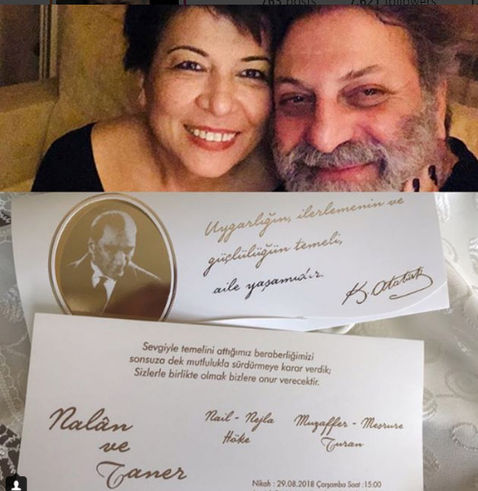 763 posts 7,621 followers
Uygarlığın, ilerlemenin ve
güçlülüğün temeli,
aile yaşamıdır.
K. Atatürk
Sevgiyle temelini attığımız beraberliğimizi
sonsuza dek mutlulukla sürdürmeye karar verdik;
Sizlerle birlikte olmak bizlere onur verecektir.
Nalân
ve
Taner
Nail - Nejla
Höke
Muzaffer - Mesrure
Turan
Nikah : 29.08.2018 Çarşamba Saat :15:00